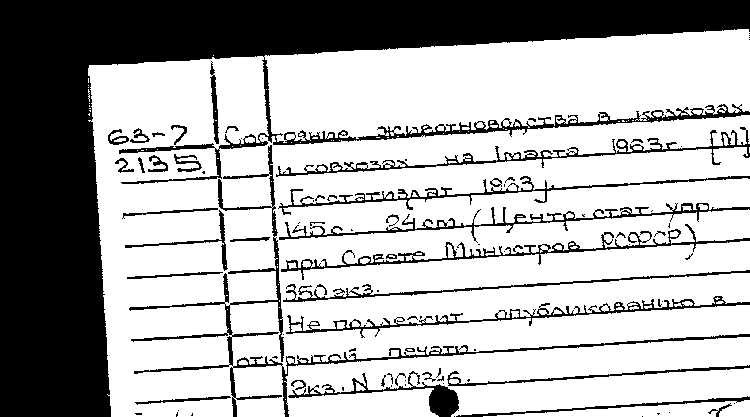 63-7 Состояние животноводства в колхозах
2135. и совхозах на 1 марта 1963 г. [М]
[Госстатиздат, 1963].
145 с. 24 см. (Центр. стат. упр.
при Совете Министров РСФСР)
350 экз.
Не подлежит опубликованию в
открытой печати.
Экз. N 000346.